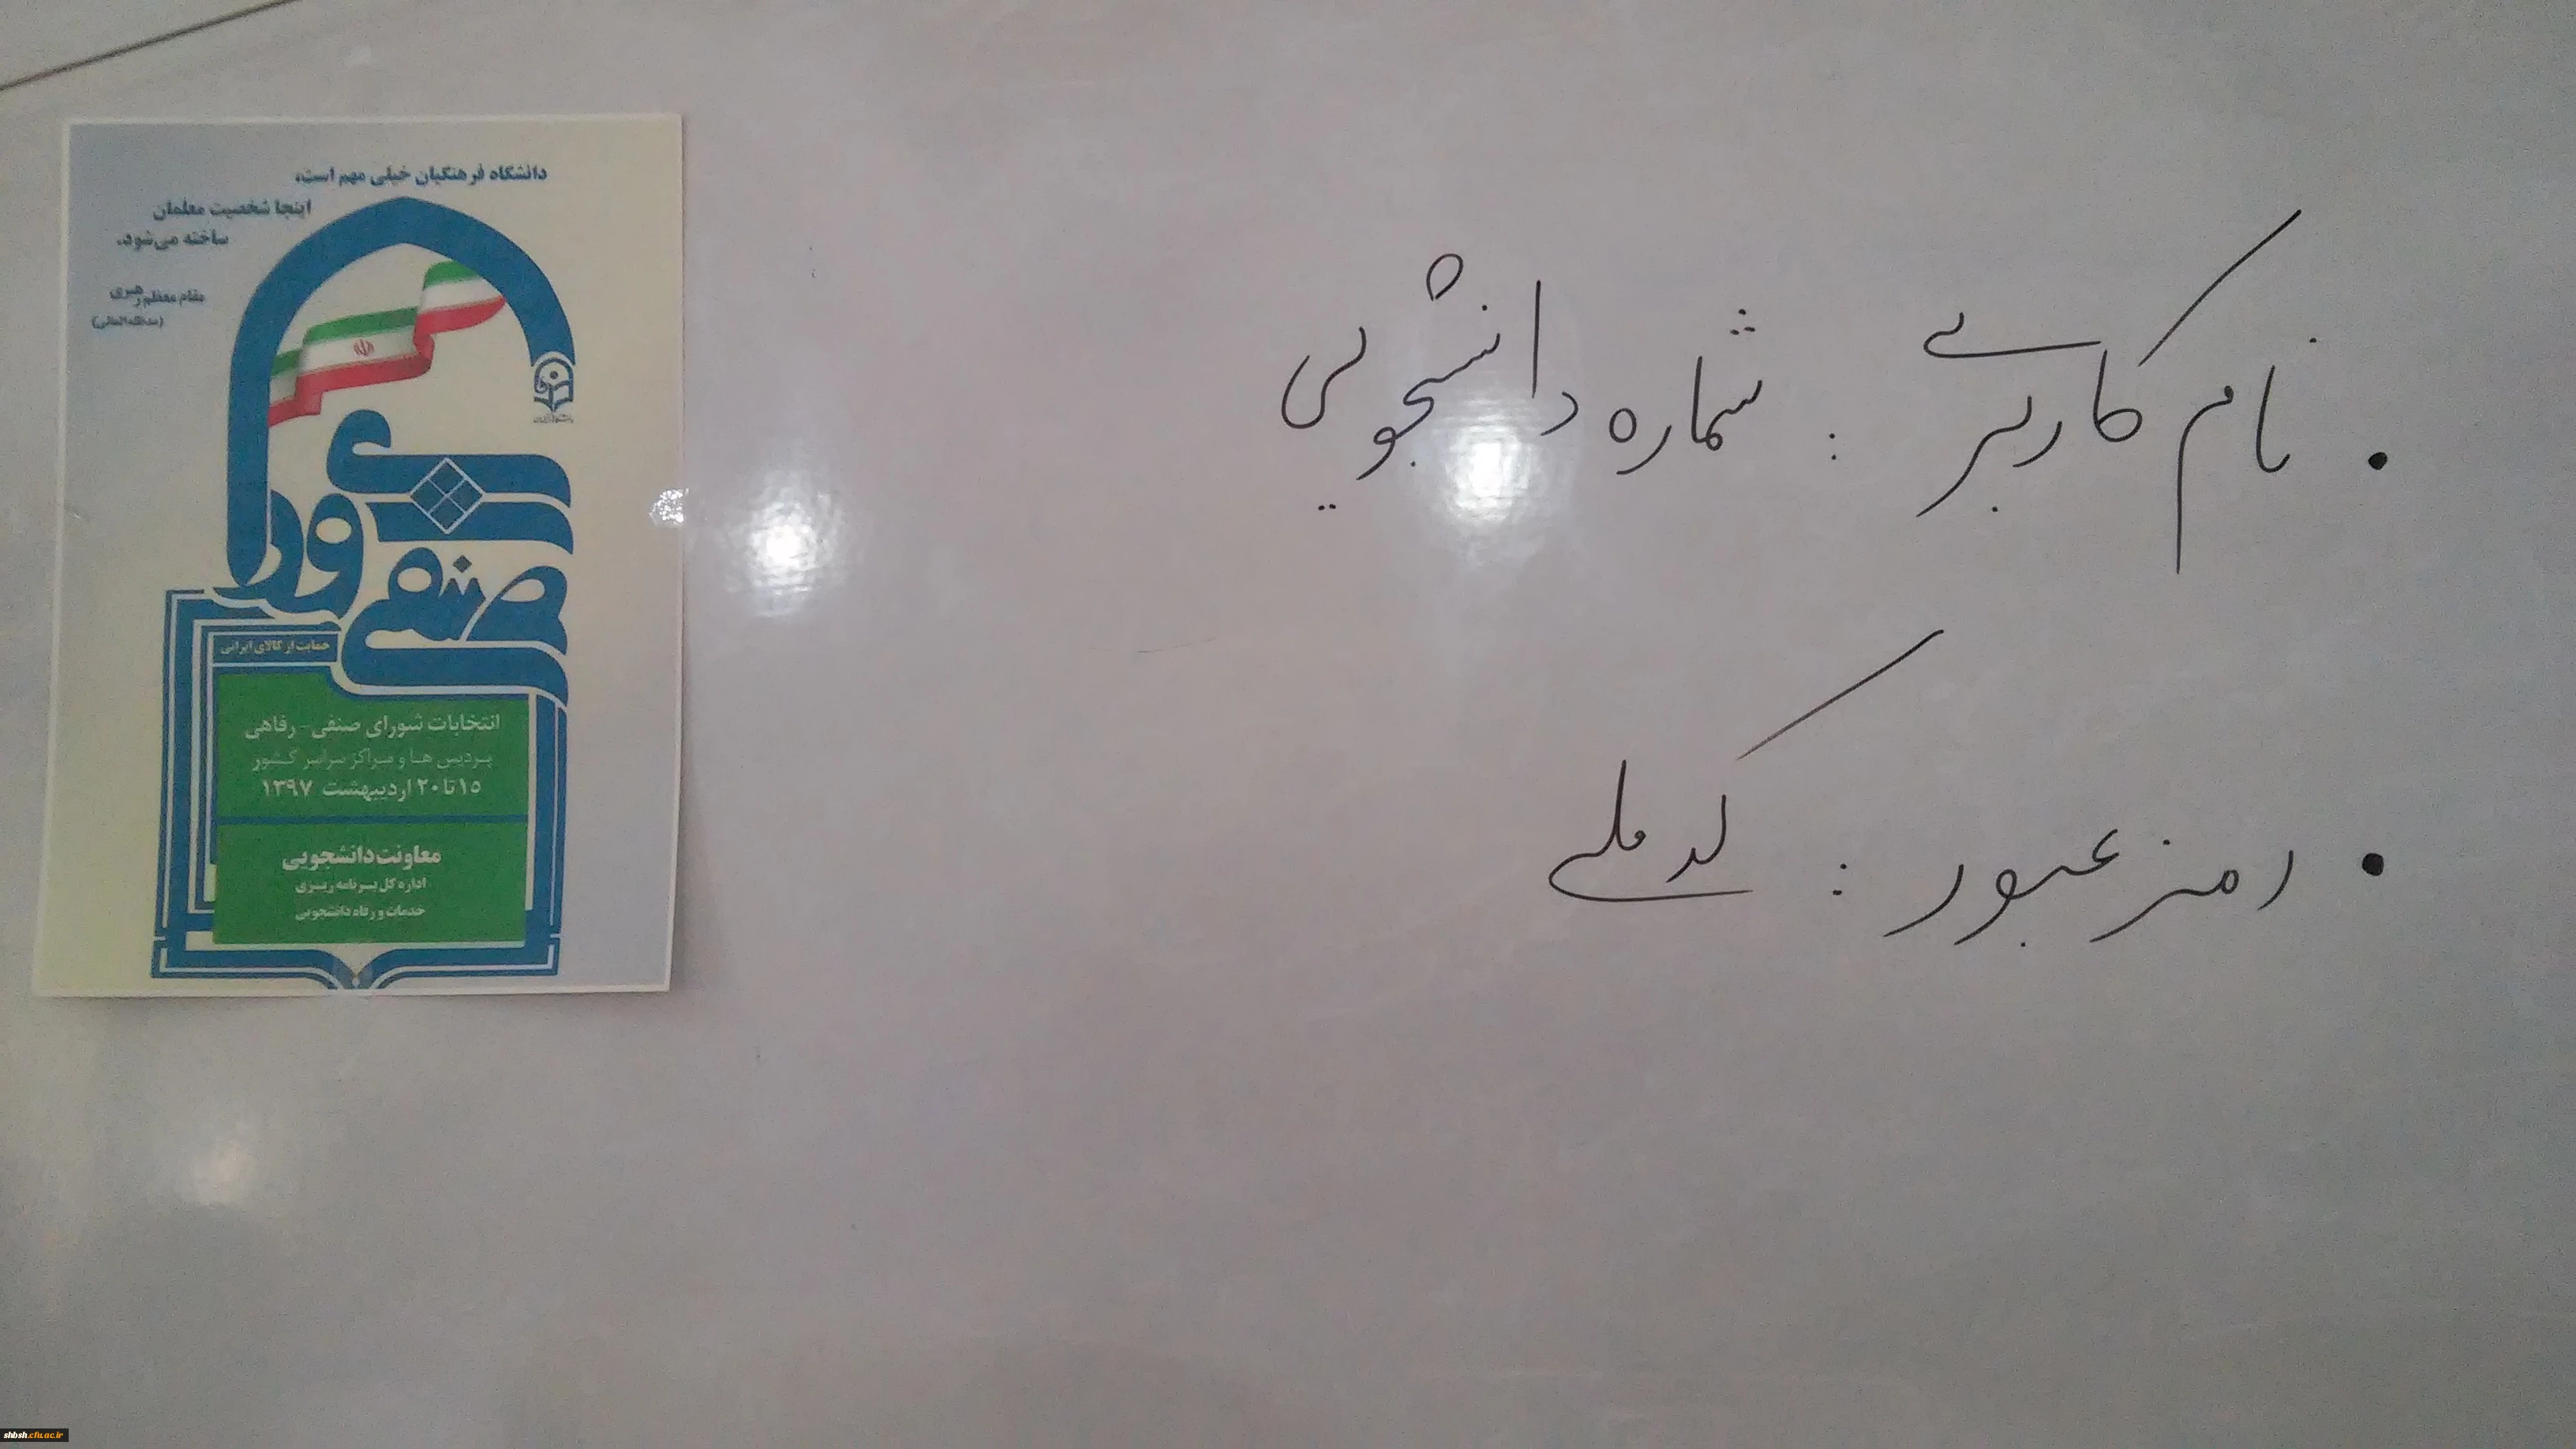 • نام کاربری : شماره دانشجویی
• رمز عبور : کد ملی
دانشگاه فرهنگیان خیلی مهم است،
اینجا شخصیت معلمان
ساخته می‌شود.
مقام معظم رهبری
(مدظله العالی)
شورای
صنفی
حمایت از کالای ایرانی
انتخابات شورای صنفی - رفاهی
پردیس ها و مراکز سراسر کشور
۱۵ تا ۲۰ اردیبهشت ۱۳۹۷
معاونت دانشجویی
اداره کل برنامه ریزی
خدمات و رفاه دانشجویی
shbsh.cfu.ac.ir